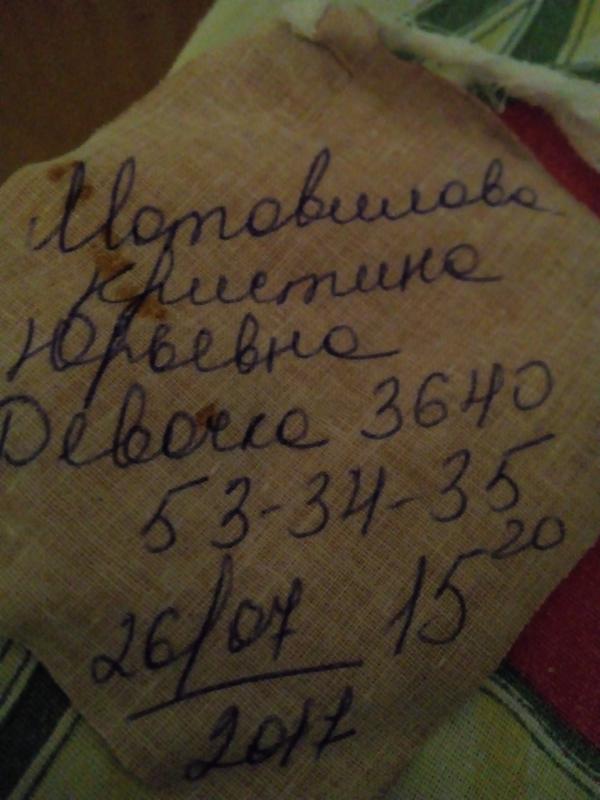 Мотовилова
Кристина
Юрьевна
Девочка 3640
53-34-35
26/07 15 20
2017